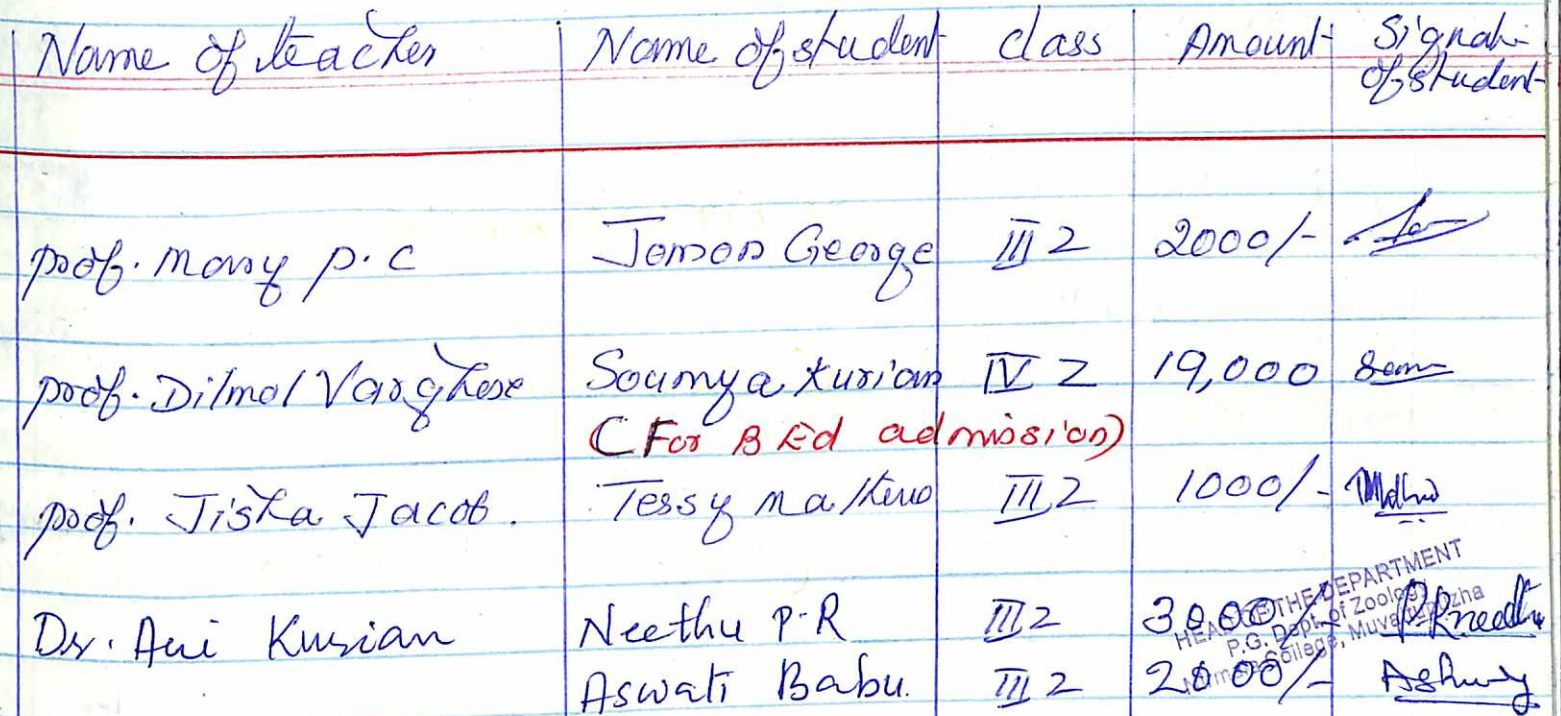 Name of teacher | Name of student | class | Amount | Signat- of student
prof. Mary P.C | Jomon George | III Z | 2000/-
prof. Dilmol Varghese | Soumya Kurian | IV Z | 19,000 | Soum
(For B Ed admission)
prof. Jisha Jacob. | Tessy Mathew | III Z | 1000/-
Dr. Ani Kurian | Neethu P.R | III Z | 3000/- | PRneethu
Aswati Babu. | III Z | 2000/-
HEAD OF THE DEPARTMENT
P.G. Dept. of Zoology
College, Muvattupuzha